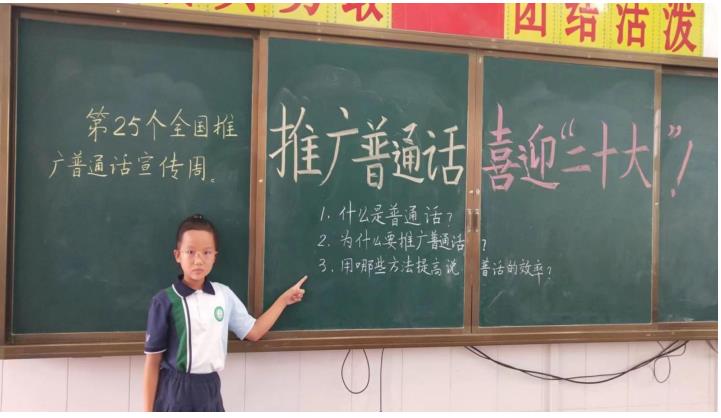 团结活泼
第25个全国推
广普通话宣传周。
推广普通话 喜迎“二十大”！
1. 什么是普通话？
2. 为什么要推广普通话？
3. 用哪些方法提高说 普话的效率？